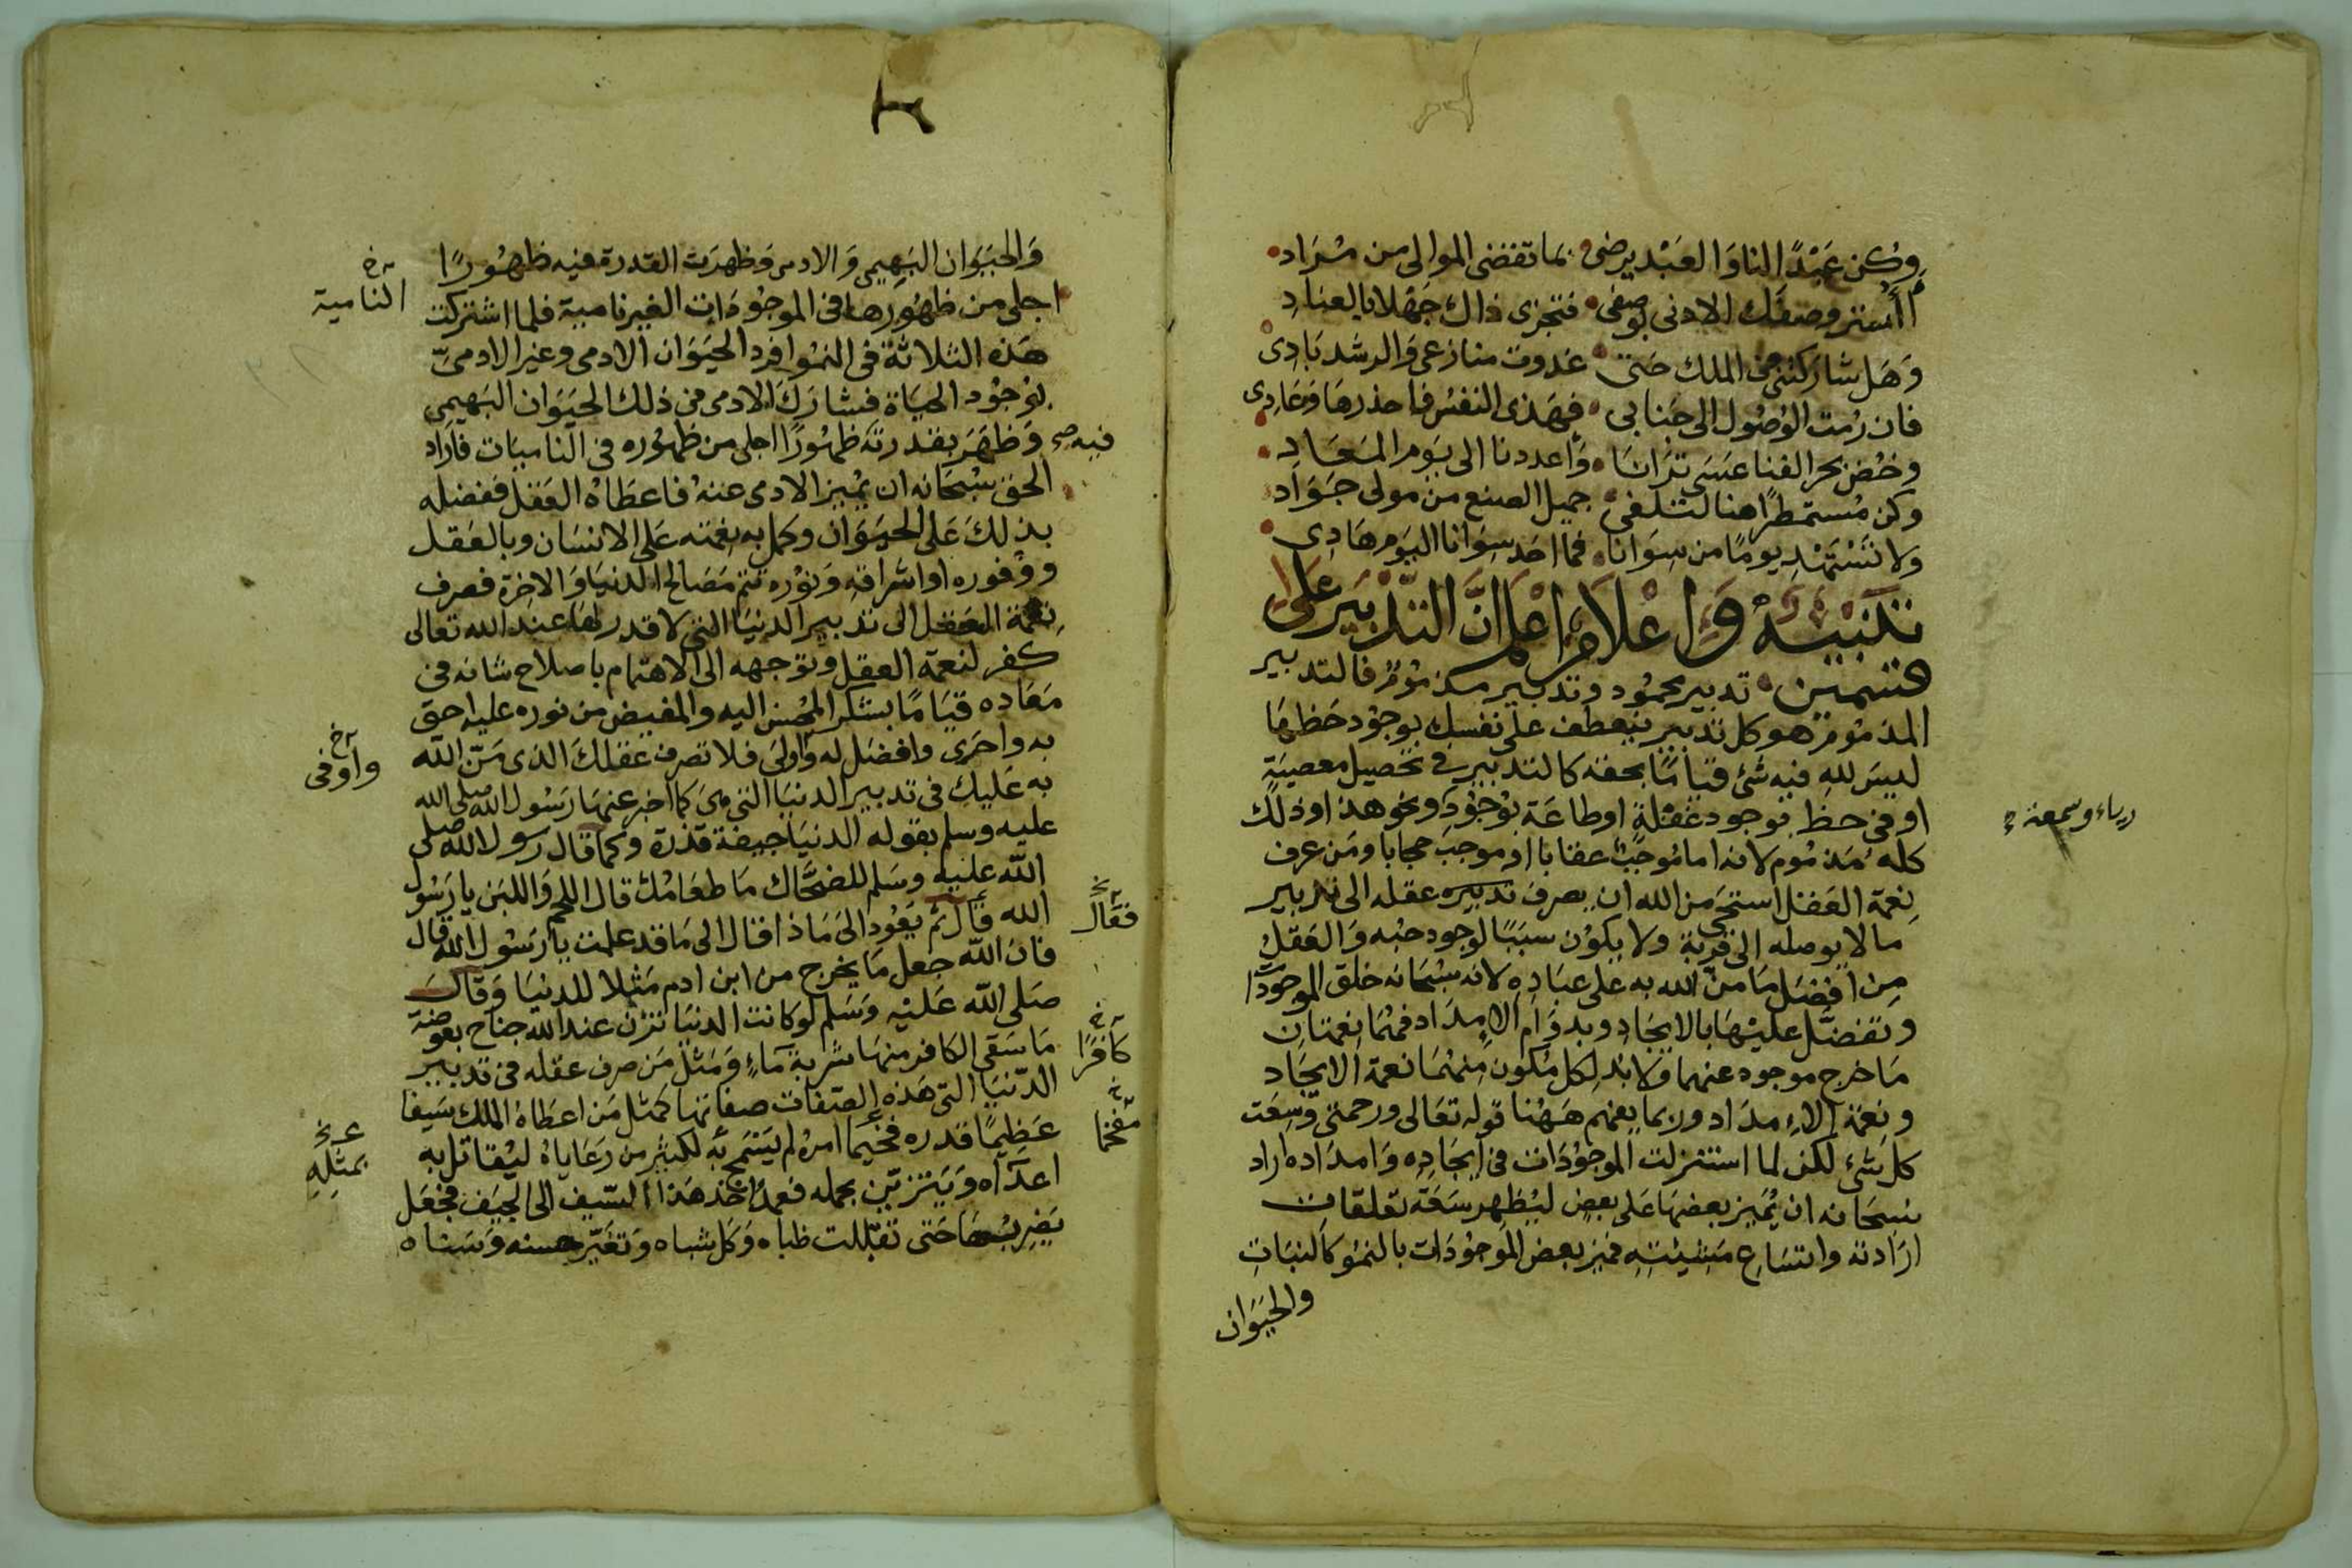 وكن عبدا لنا والعبد يرضى بما تقضى الموالى من مراد
أأستر وصفك الادنى بوصفى فتجزى ذاك جهلا بالعناد
وهل شاركتنى فى الملك حتى غدوت منازعى والرشد بادى
فان رمت الوصول الى جنابى فهذى النفس فاحذرها وعادى
وخض بحر الفنا عسى ترانا واعددنا الى يوم المعاد
وكن مستمطرا هنا لتلفى جميل الصنع من مولى جواد
ولا تستهد يوما من سوانا فما احد سوانا اليوم هادى
تنبيه واعلام اعلم ان التدبير على
قسمين تدبير محمود وتدبير مذموم فالتدبير
المذموم هو كل تدبير ينعطف على نفسك بوجود حظها
ليس لله فيه شئ قياما بحقه كالتدبير فى تحصيل معصية
او فى حظ بوجود غفلة او طاعة بوجود ونحو هذا وذلك
رياء وسمعة
كله مذموم لانه اما موجب عقابا او موجب حجابا ومن عرف
نعمة العقل استحى من الله ان يصرف تدبيره عقله الى تدبير
ما لا يوصله الى قربة ولا يكون سببا لوجود حبه والعقل
من افضل ما من الله به على عباده لانه سبحانه خلق الموجودا
وتفضل عليها بالايجاد وبدوام الامداد فهما نعمتان
ما خرج موجود عنهما ولا بد لكل مكون منهما نعمة الايجاد
ونعمة الامداد وربما يفهم ههنا قوله تعالى ورحمتى وسعت
كل شئ لكن لما استنزلت الموجودات فى ايجاده وامداده اراد
سبحانه ان يميز بعضها على بعض ليظهر سعة تعلقات
ارادته واتساع مشيئته فميز بعض الموجودات بالنمو كالنبات
والحيوان
والحيوان البهيمى والادمى وظهرت القدرة فيه ظهورا
اجلى من ظهورها فى الموجودات الغير نامية فلما اشتركت
النامية
هذه الثلاثة فى النمو افرد الحيوان الادمى وغير الادمى
بوجود الحياة فشارك الادمى فى ذلك الحيوان البهيمى
فيه صح وظهر بقدرته ظهورا اجلى من ظهوره فى الناميات فاراد
الحق سبحانه ان يميز الادمى عنه فاعطاه العقل ففضله
بذلك على الحيوان وكمل به نعمته على الانسان وبالعقل
ووفوره او اشراقه ونوره تتم مصالح الدنيا والاخرة فصرف
نعمة العقل الى تدبير الدنيا التى لا قدر لها عند الله تعالى
كفر لنعمة العقل وتوجهه الى الاهتمام باصلاح شانه فى
معاده قياما بشكر المحسن اليه والمفيض من نوره عليه احق
به واحرى وافضل له واولى فلا تصرف عقلك الذى من الله
واوفى
به عليك فى تدبير الدنيا التى هى كما اخبر عنها رسول الله صلى الله
عليه وسلم بقوله الدنيا جيفة قذرة وكما قال رسول الله صلى
الله عليه وسلم للضحاك ما طعامك قال اللحم واللبن يا رسول
الله قال ثم يعود الى ماذا قال الى ما قد علمت يا رسول الله قال
فقال
فان الله جعل ما يخرج من ابن ادم مثلا للدنيا وقال
صلى الله عليه وسلم لو كانت الدنيا تزن عند الله جناح بعوضة
ما سقى الكافر منها شربة ماء ومثل من صرف عقله فى تدبير
كافرا
الدنيا التى هذه الصفات صفاتها كمثل من اعطاه الملك سيفا
عظيما قدره فخيما امره لم يسمح به لكثير من رعاياه ليقاتل به
مفخما
بمثله
اعداه ويتزين بحمله فعمد اخذ هذا السيف الى الجيف فجعل
يضربها حتى تفللت ظباه وكل شباه وتغير حسنه وسناه